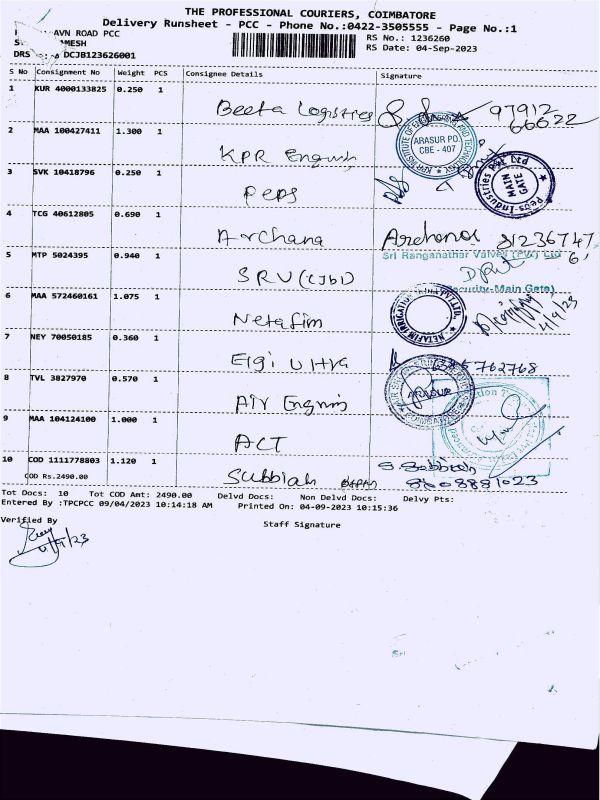 THE PROFESSIONAL COURIERS, COIMBATORE
Delivery Runsheet - PCC - Phone No.:0422-3505555 - Page No.:1
AVN ROAD PCC
RS No.: 1236260
AMESH
RS Date: 04-Sep-2023
DRS DCJB123626001
S No Consignment No Weight PCS Consignee Details Signature
1 KUR 4000133825 0.250 1 Beeta Logistics 97912 66622
2 MAA 100427411 1.300 1 KPR Engun
ARASUR PO.
CBE - 407
3 SVK 10418796 0.250 1 Peps
Peps Industries Pvt Ltd
MAIN GATE
4 TCG 40612805 0.690 1 Archana Archana 81236747
5 MTP 5024395 0.940 1 SRV (CJbD)
Sri Ranganathar Valves (Pvt) Ltd
(Security-Main Gate)
6 MAA 572460161 1.075 1 Netafim
NETAFIM IRRIGATION INDIA PVT. LTD.
4/9/23
7 NEY 70050185 0.360 1 Elgi Ultra
8 TVL 3827970 0.570 1 Air Engnis
ARASUR
9 MAA 104124100 1.000 1 ACT
10 COD 1111778803 1.120 1 Subbiah S. Subbiah
COD Rs.2490.00
Tot Docs: 10 Tot COD Amt: 2490.00 Delvd Docs: Non Delvd Docs: Delvy Pts:
Entered By :TPCPCC 09/04/2023 10:14:18 AM Printed On: 04-09-2023 10:15:36
Verified By Staff Signature